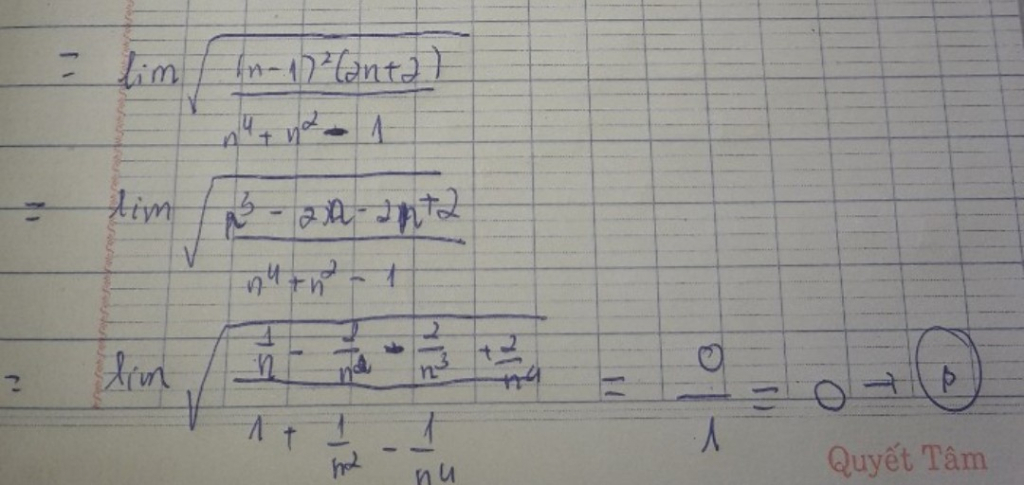 = lim √((n-1)²(2n+2) / (n⁴ + n² - 1))
= lim √((n³ - 2n - 2n + 2) / (n⁴ + n² - 1))
= lim √((1/n - 2/n² - 2/n³ + 2/n⁴) / (1 + 1/n² - 1/n⁴)) = 0/1 = 0 →
Quyết Tâm